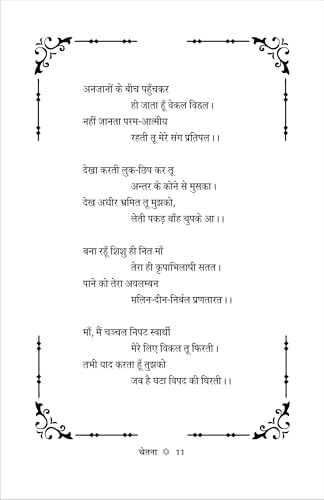 अनजानों के बीच पहुँचकर
हो जाता हूँ वेकल विह्वल।
नहीं जानता परम-आत्मीय
रहती तू मेरे संग प्रतिपल।।
देखा करती लुक-छिप कर तू
अन्तर के कोने से मुसका।
देख अधीर भ्रमित तू मुझको,
लेती पकड़ बाँह चुपके आ।।
बना रहूँ शिशु ही नित माँ
तेरा ही कृपाभिलाषी सतत।
पाने को तेरा अवलम्बन
मलिन-दीन-निर्बल प्रणतारत।।
माँ, मैं चञ्चल निपट स्वार्थी
मेरे लिए विकल तू फिरती।
तभी याद करता हूँ तुझको
जब है घटा विपद की घिरती।।
चेतना ☼ 11